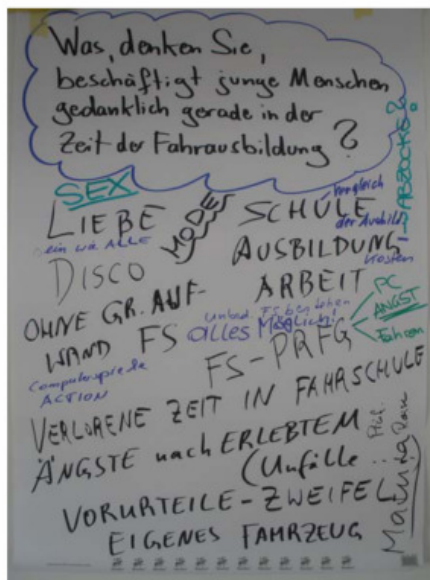 Was, denken Sie,
beschäftigt junge Menschen
gedanklich gerade in der
Zeit der Fahrausbildung?
→ ABZOCKE?
SEX
LIEBE
MODE
SCHULE
Vergleich
der Ausbild.
kosten
sein wie ALLE
AUSBILDUNG
DISCO
ARBEIT
OHNE GR. AUF-
WAND FS
unbed. FS bestehen
alles Mögliche!
PC
ANGST
Fahren
FS-PRFG
Computerspiele
ACTION
VERLORENE ZEIT IN FAHRSCHULE
ÄNGSTE nach ERLEBTEM
(Unfälle ...)
VORURTEILE - ZWEIFEL
EIGENES FAHRZEUG